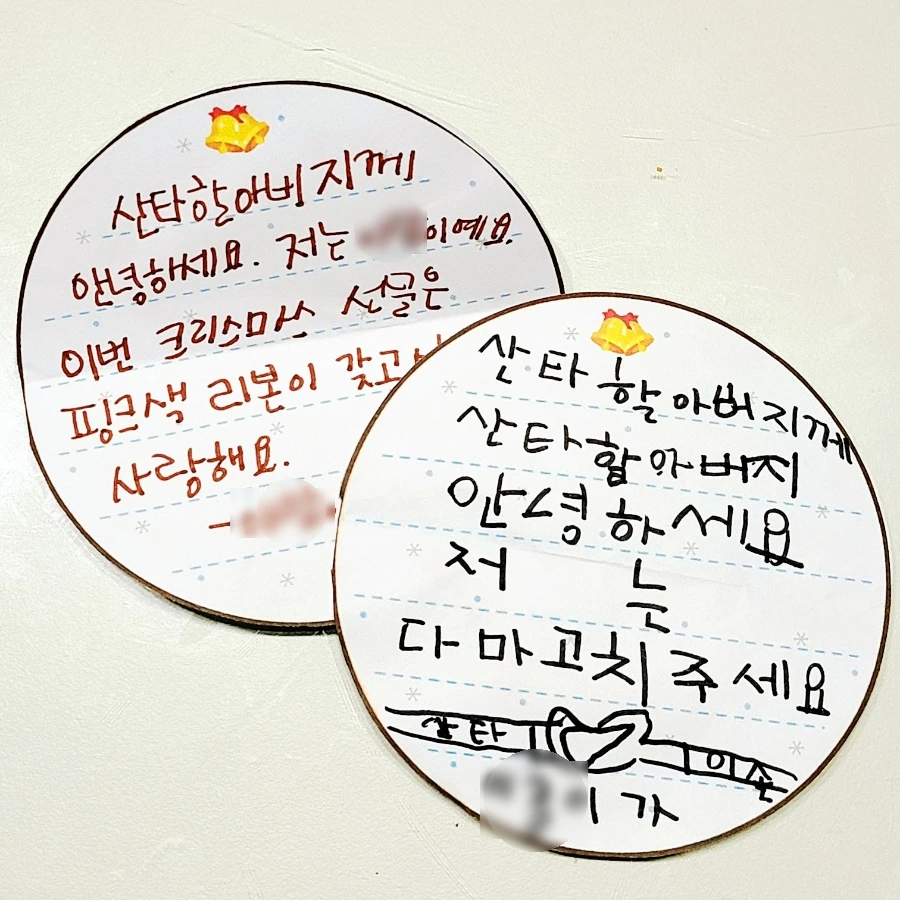 산타할아버지께
안녕하세요. 저는 이예요.
이번 크리스마스 선물은
핑크색 리본이 갖고
사랑해요.
산타할아버지께
산타할아버지
안녕하세요
저는
다마고치주세요
산타 이손
이가